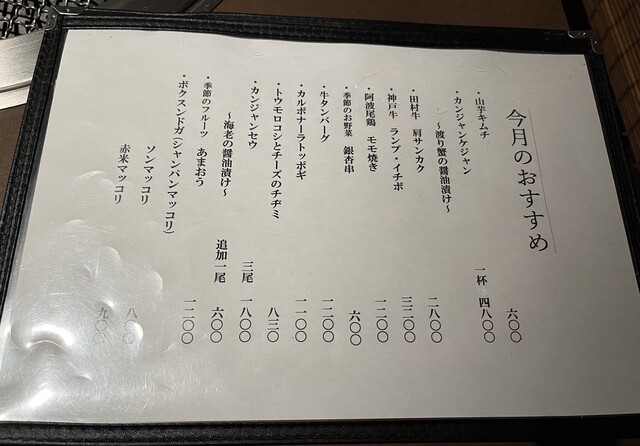 今月のおすすめ
・山芋キムチ 六〇〇
・カンジャンケジャン 一杯 四八〇〇
～渡り蟹の醤油漬け～
・田村牛 肩サンカク 二八〇〇
・神戸牛 ランプ・イチボ 三二〇〇
・阿波尾鶏 モモ焼き 一二〇〇
・季節のお野菜 銀杏串 六〇〇
・牛タンバーグ 一二〇〇
・カルボナーラトッポギ 一一〇〇
・トウモロコシとチーズのチヂミ 八三〇
・カンジャンセウ 三尾 一八〇〇
～海老の醤油漬け～ 追加一尾 六〇〇
・季節のフルーツ あまおう 一二〇〇
・ボクスンドガ(シャンパンマッコリ)
ソンマッコリ 八〇〇
赤米マッコリ 九〇〇